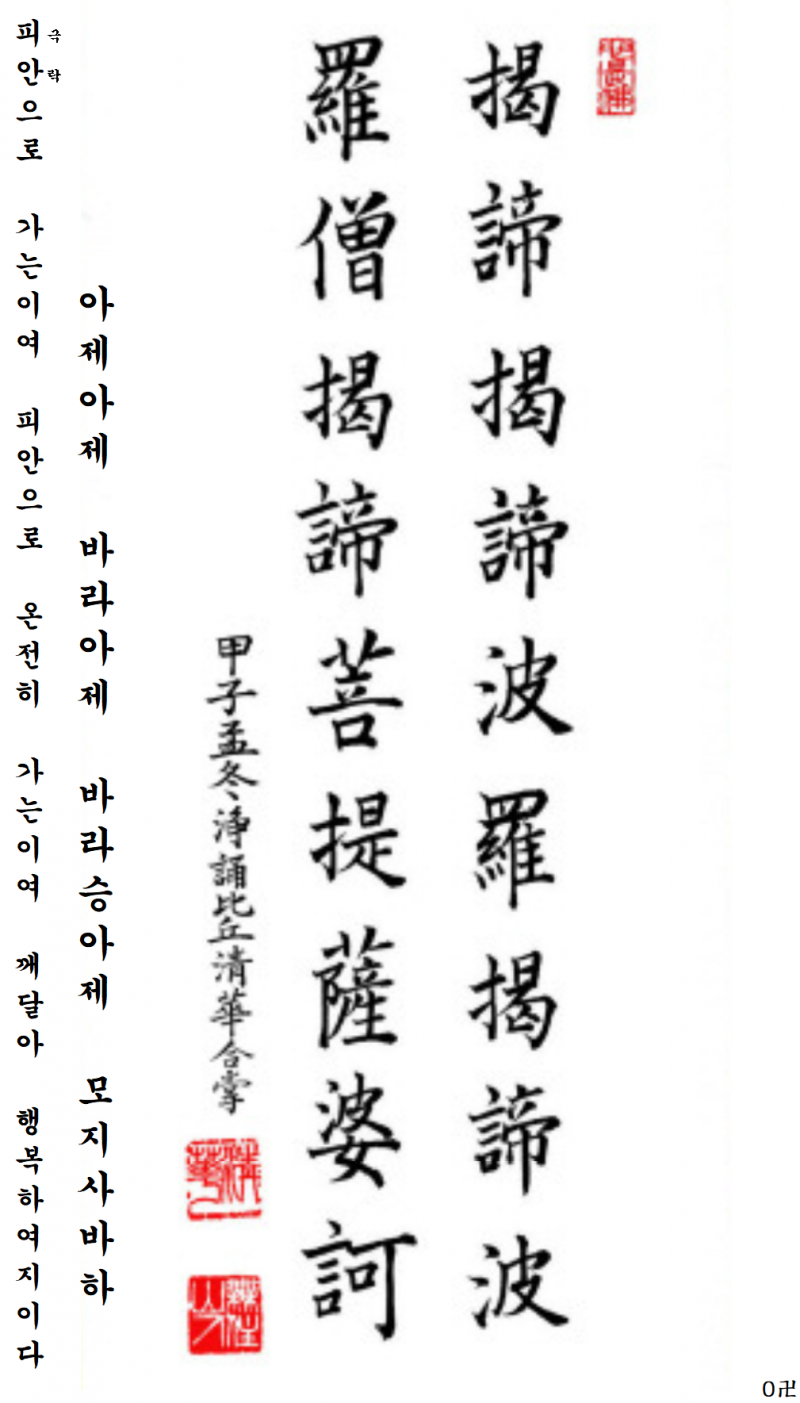 揭諦揭諦波羅揭諦波
羅僧揭諦菩提薩婆訶
甲子孟冬淨誦比丘清華合掌
아제아제 바라아제 바라승아제 모지사바하
극락
피안으로 가는이여 피안으로 온전히 가는이여 깨달아 행복하여지이다
০卍